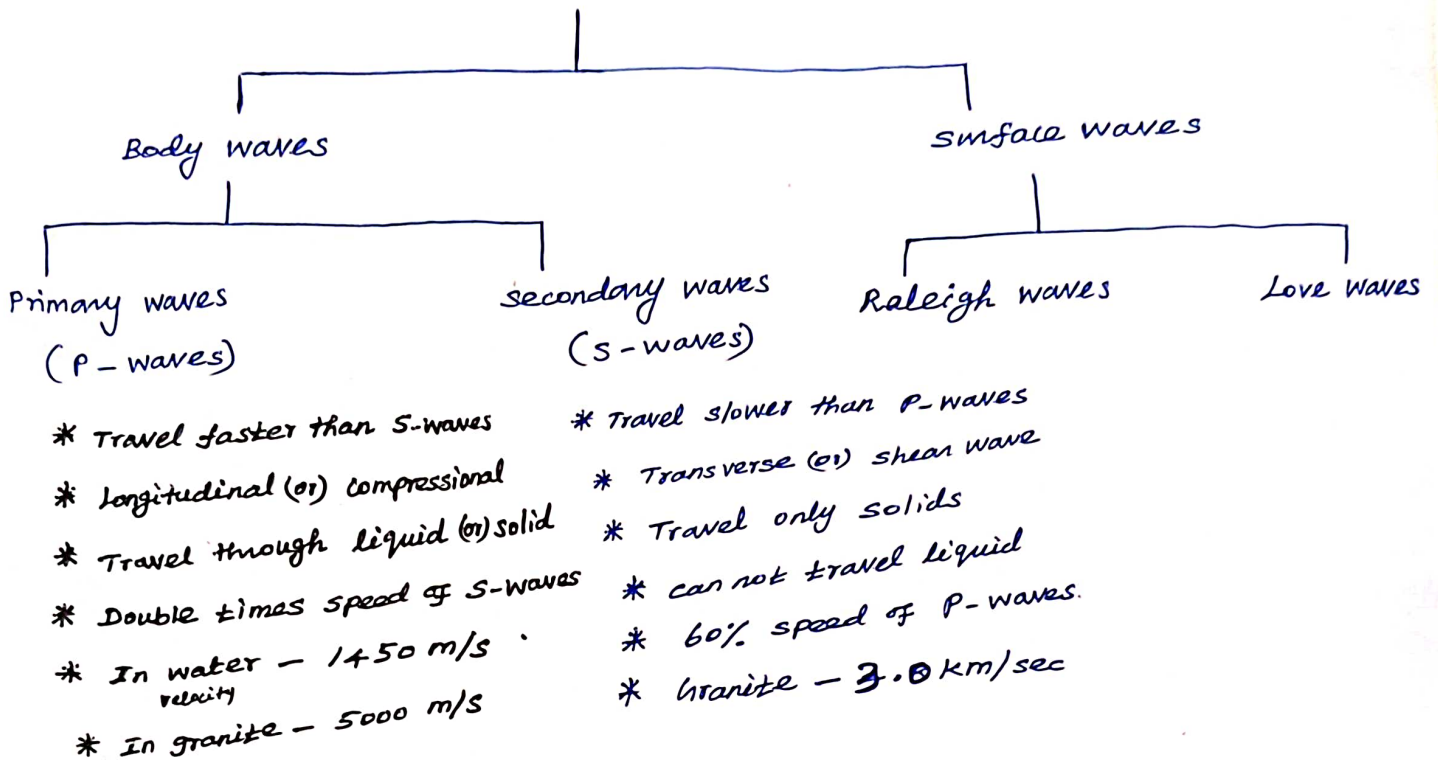 Body waves
Surface waves
Primary waves
(P - waves)
secondary waves
(S - waves)
Raleigh waves
Love waves
* Travel faster than S-waves
* Longitudinal (or) compressional
* Travel through liquid (or) solid
* Double times speed of S-waves
* In water - 1450 m/s
velocity
* In granite - 5000 m/s
* Travel slower than P-waves
* Transverse (or) shear wave
* Travel only solids
* can not travel liquid
* 60% speed of P-waves.
* Granite - 3.0 km/sec